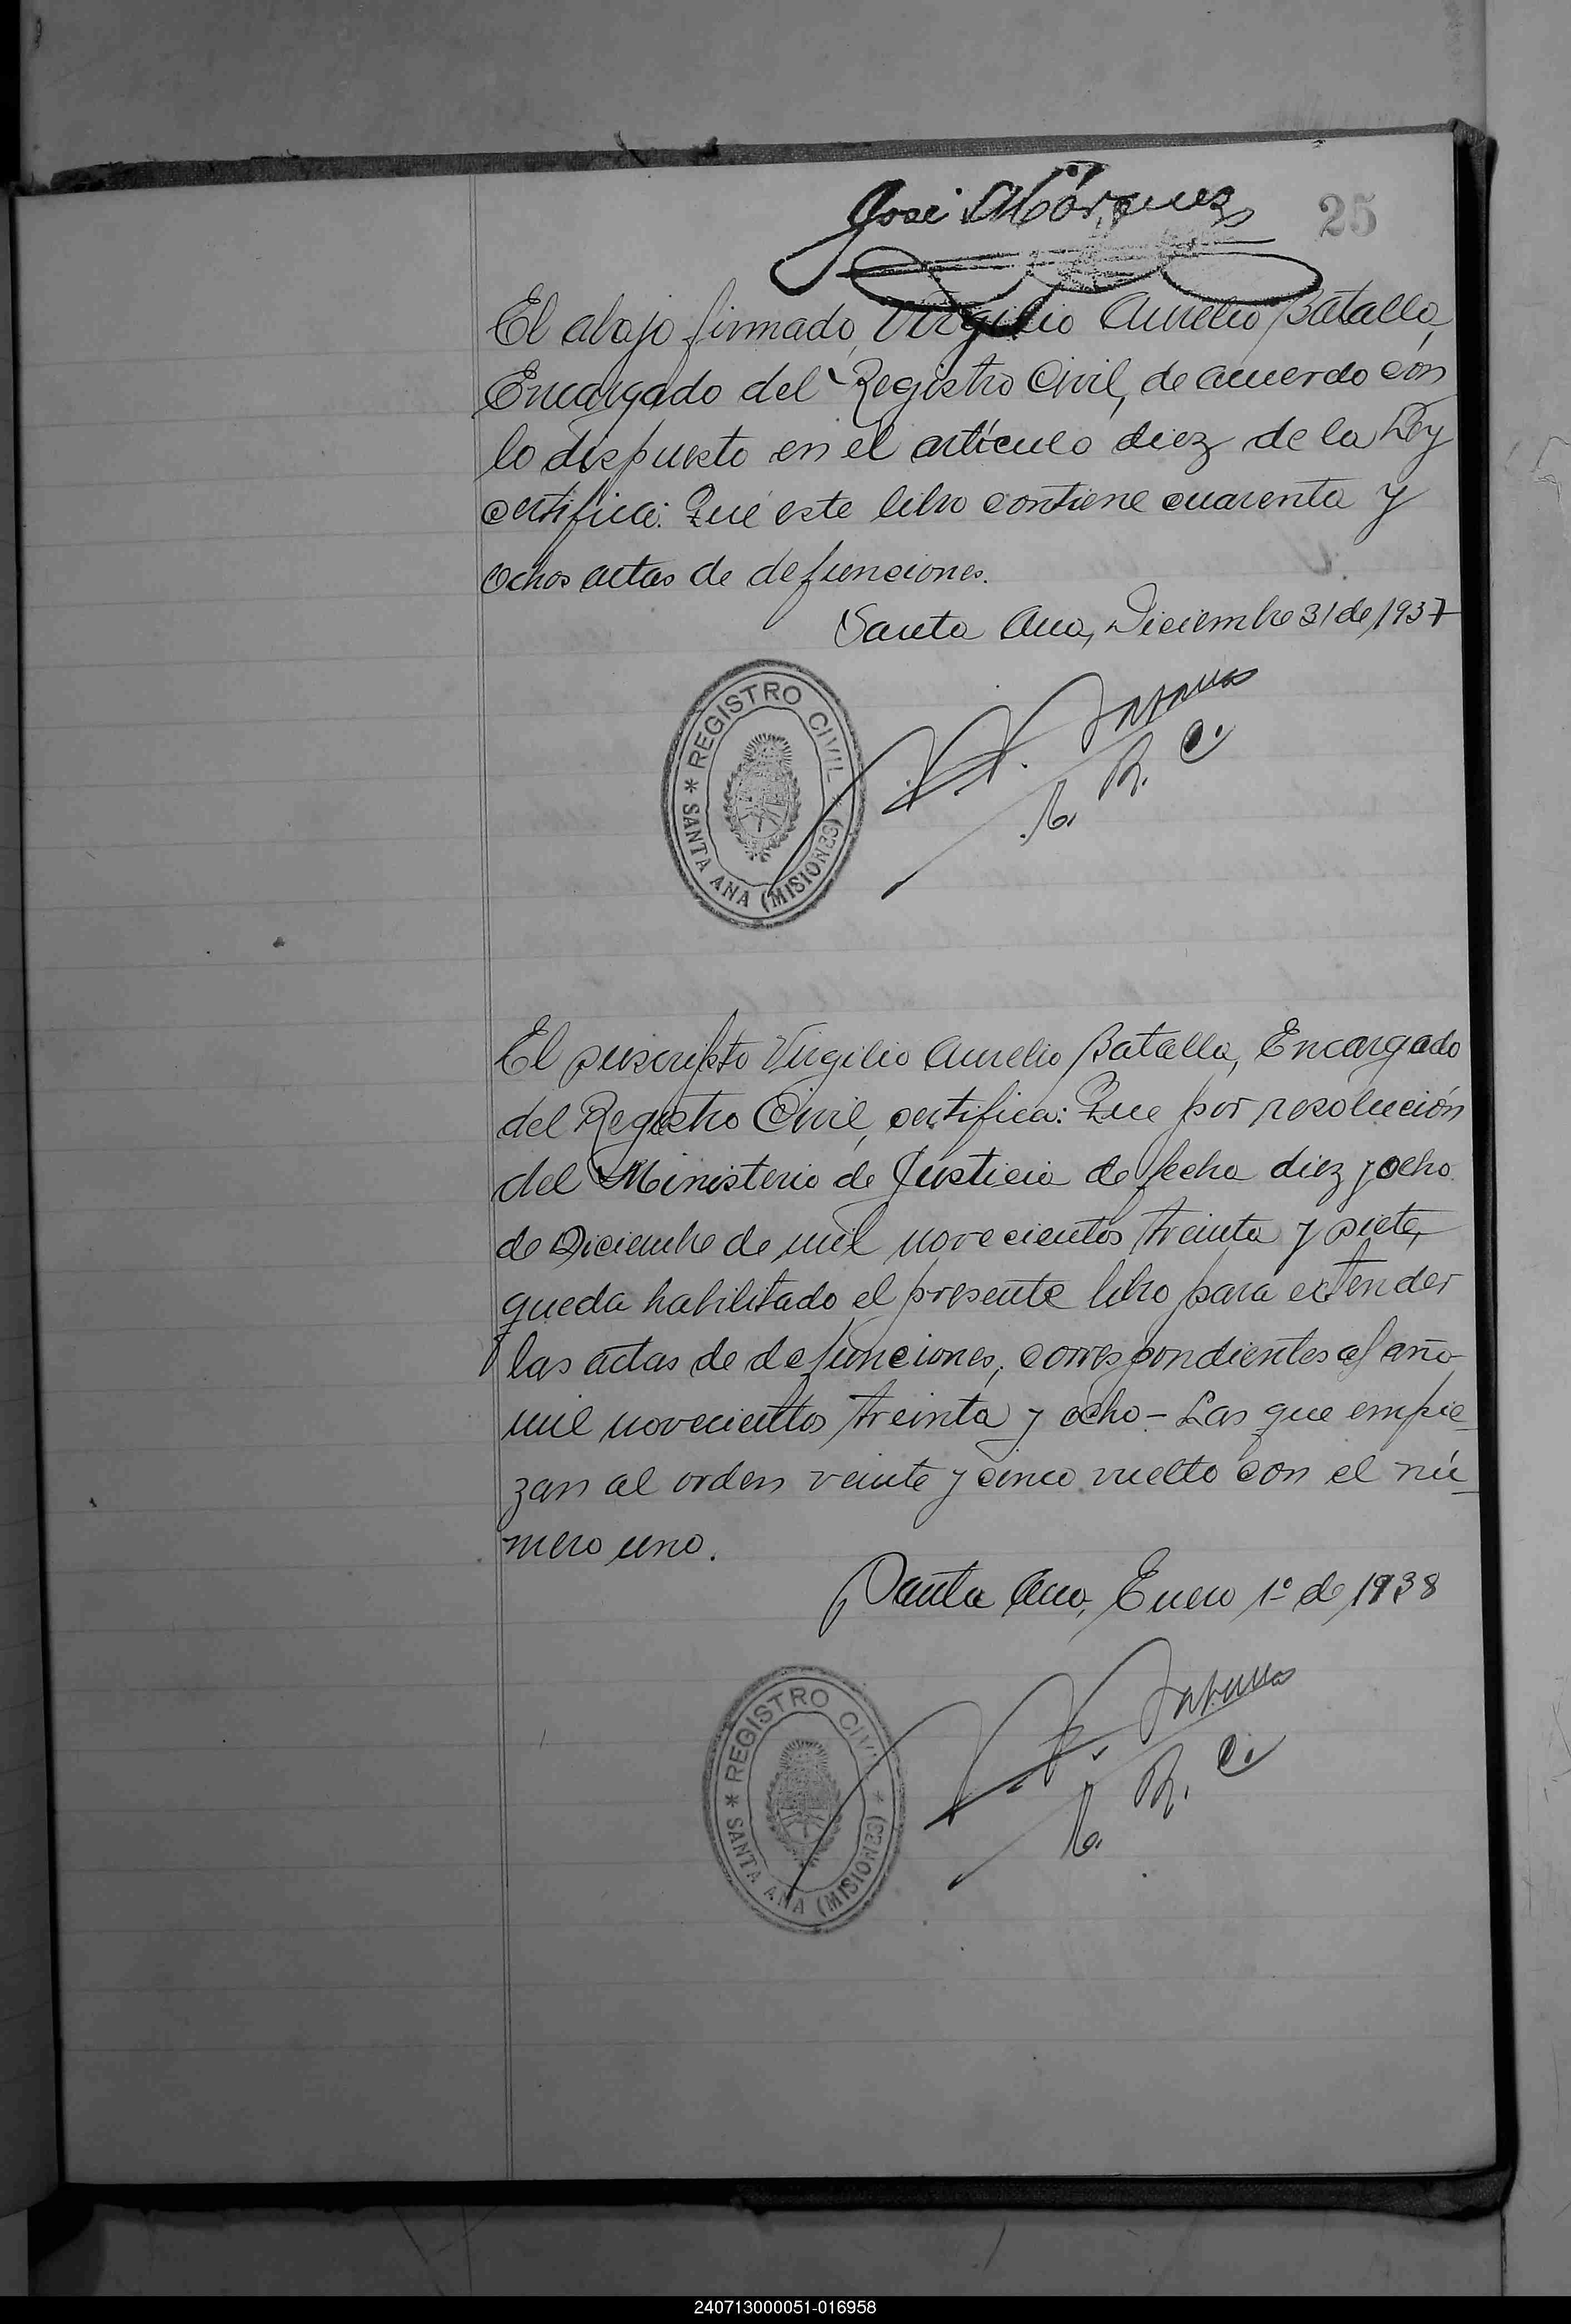 José Márquez
25
El abajo firmado, Virgilio Aurelio Batalla,
Encargado del Registro Civil, de acuerdo con
lo dispuesto en el artículo diez de la Ley
certifica: Que este libro contiene cuarenta y
ochos actas de defunciones.
Santa Ana, Diciembre 31 de 1937
REGISTRO CIVIL
* SANTA ANA (MISIONES) *
E. R. C.
El suscripto Virgilio Aurelio Batalla, Encargado
del Registro Civil, certifica: Que por resolución
del Ministerio de Justicia de fecha diez y ocho
de Diciembre de mil novecientos treinta y siete,
queda habilitado el presente libro para extender
las actas de defunciones, correspondientes al año
mil novecientos treinta y ocho - Las que empie-
zan al orden veinte y cinco vuelto con el nú-
mero uno.
Santa Ana, Enero 1º de 1938
REGISTRO CIVIL
* SANTA ANA (MISIONES) *
E. R. C.
240713000051-016958